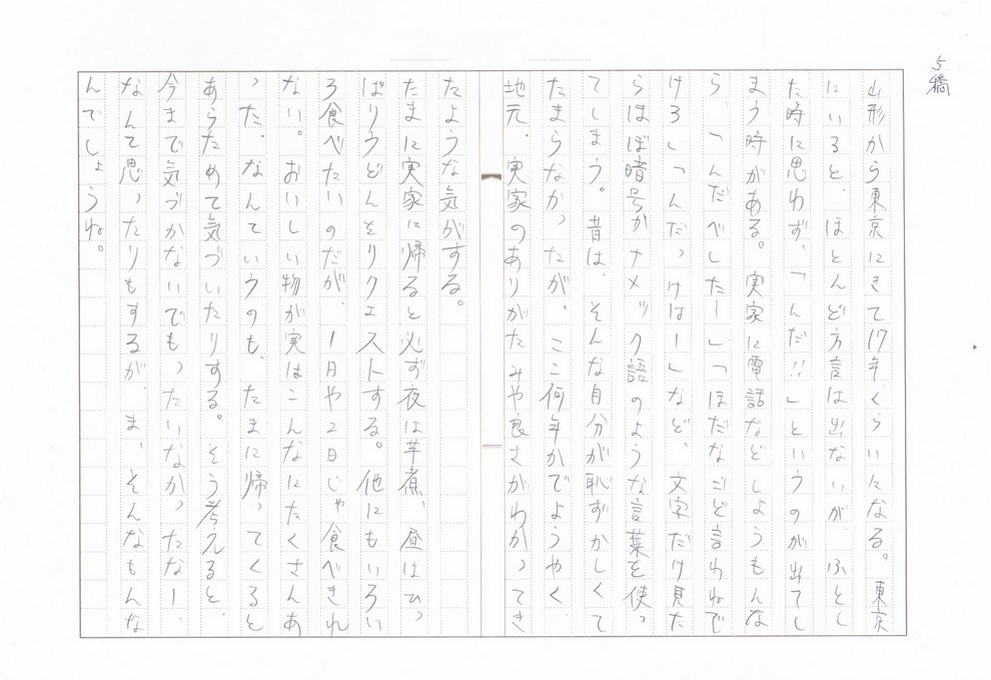 5稿
山形から東京にきて17年くらいたなる。東京
にいると、ほとんど方言は出ないが、ふとし
た時に思わず、「んだ!!」というのが出てし
まう時がある。実家に電話などしようもんな
ら、「んだべしたー」「ほだなごど言わねで
けろ」「んだっけはー」など、文字だけ見た
らほぼ暗号かナメック語のような言葉を使っ
てしまう。昔は、そんな自分が恥ずかしくて
たまらなかったが、ここ何年かでようやく
地元、実家のありがたみや良さがわかってき
たような気がする。
たまに実家に帰ると必ず夜は芋煮、昼はひっ
ぱりうどんをリクエストする。他にもいろい
ろ食べたいのだが、1日や2日じゃ食べきれ
ない。おいしい物が実はこんなにたくさんあ
った。なんていうのも、たまに帰ってくると
あらためて気づいたりする。そう考えると、
今まで気づかないでもったいなかったなー、
なんて思ったりもするが、ま、そんなもんな
んでしょうね。